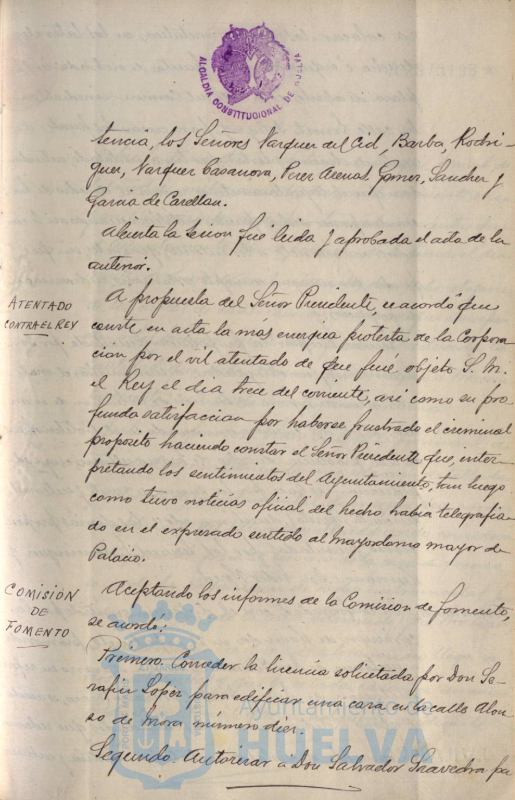 ALCALDIA CONSTITUCIONAL DE HUELVA
tencia, los Señores Vazquez del Cid, Barba, Rodri-
guez, Vazquez Casanova, Perez Arenas, Gomez, Sanchez y
Garcia de Castellan.
Abierta la sesion fué leida y aprobada el acta de la
anterior.
ATENTADO
CONTRA EL REY
A propuesta del Señor Presidente, se acordó que
conste en acta la mas energica protesta de la Corpora-
cion por el vil atentado de que fué objeto S. M.
el Rey el dia trece del corriente, asi como su pro-
funda satisfaccion por haberse frustrado el criminal
proposito haciendo constar el Señor Presidente que, inter-
pretando los sentimientos del Ayuntamiento, tan luego
como tuvo noticias oficial del hecho habia telegrafia-
do en el expresado sentido al Mayordomo mayor de
Palacio.
COMISIÓN
DE
FOMENTO
Aceptando los informes de la Comision de fomento,
se acordó:
Primero. Conceder la licencia solicitada por Don Se-
rafin Lopez para edificar una casa en la calle Alon-
so de Mora número diez.
Segundo. Autorizar a Don Salvador Saavedra pa
Ayuntamiento de
HUELVA